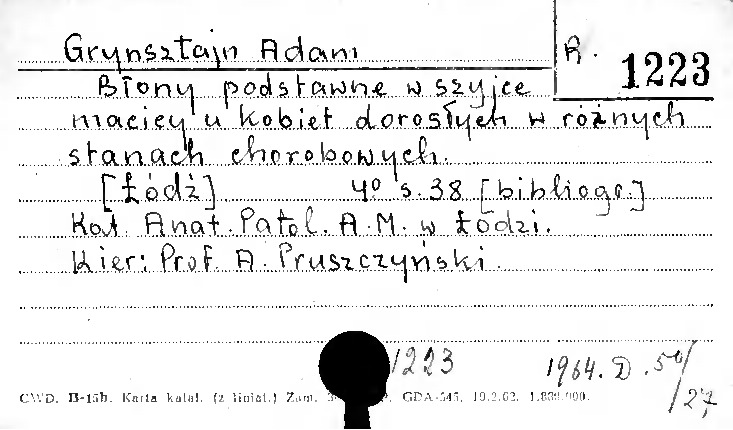 Grynsztajn Adam
R. 1223
Błony podstawne w szyjce
macicy u kobiet dorosłych w różnych
stanach chorobowych.
[Łódź] 4º s. 38 [bibliogr.]
Kat. Anat. Patol. A. M. w Łodzi.
Kier: Prof. A. Pruszczyński.
1223
1964. D. 50/
/27
CWD. B-15b. Karta katal. (z liniat.) Zam. GDA-545, 19.2.62. 1.830.000.